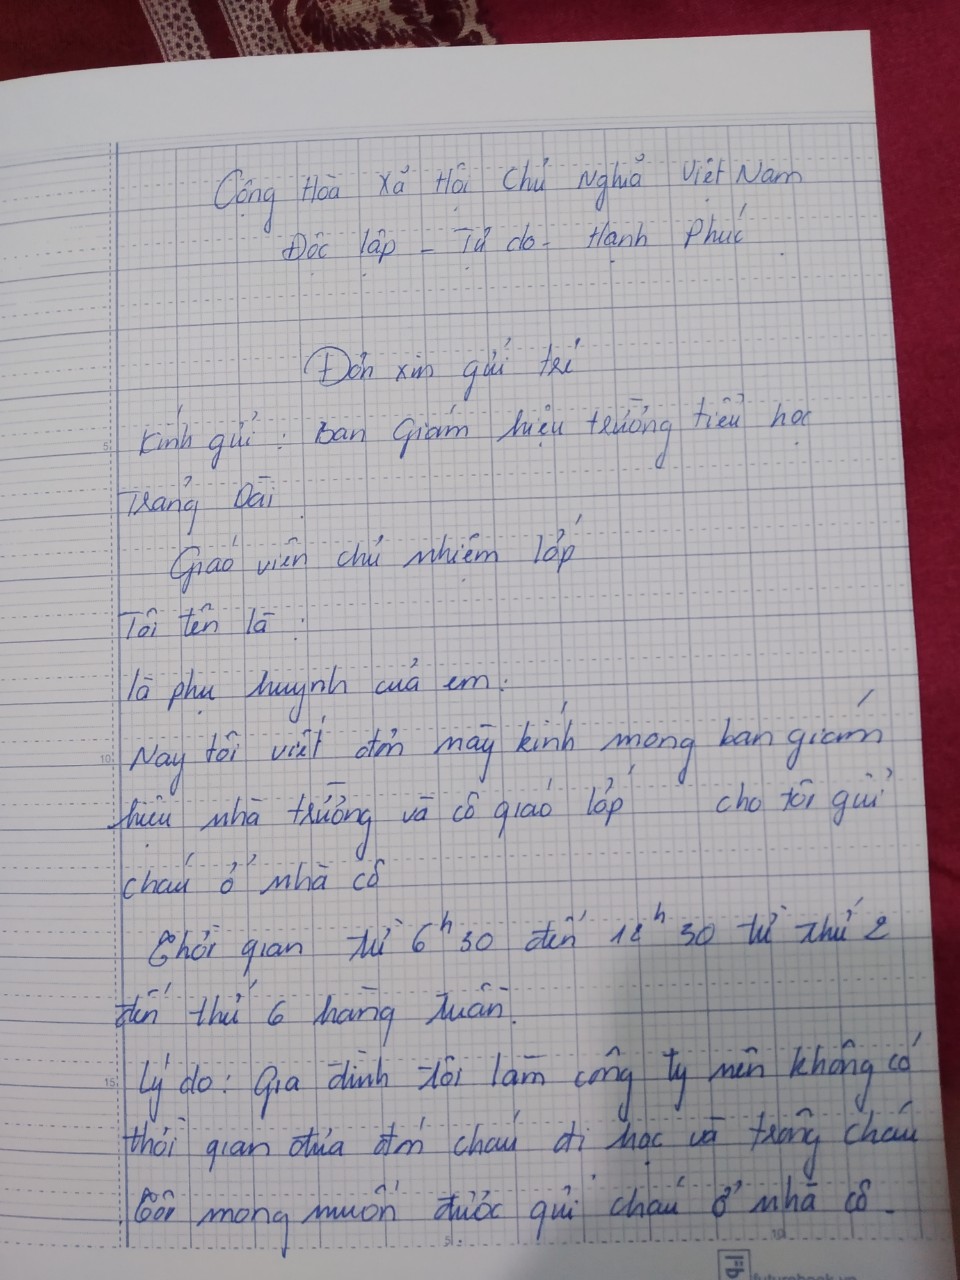 Cộng Hòa Xã Hội Chủ Nghĩa Việt Nam
Độc lập - Tự do - Hạnh Phúc
Đơn xin gửi trẻ
Kính gửi : Ban Giám hiệu trường tiểu học
Trảng Dài
Giáo viên chủ nhiệm lớp
Tôi tên là :
là phụ huynh của em :
Nay tôi viết đơn này kính mong ban giám
hiệu nhà trường và cô giáo lớp cho tôi gửi
cháu ở nhà cô
Thời gian từ 6h30 đến 18h30 từ thứ 2
đến thứ 6 hàng tuần.
Lý do : Gia đình tôi làm công ty nên không có
thời gian đưa đón cháu đi học và trông cháu
Tôi mong muốn được gửi cháu ở nhà cô.
5
10
15
5
10